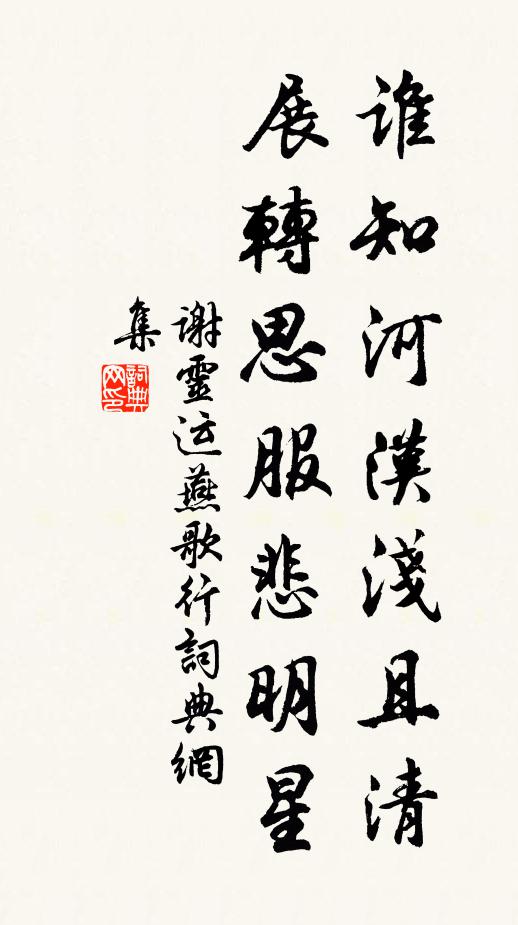 誰知河漢淺且清
展轉思服悲明星
謝靈运燕歌行詞典網
集
詞典网印